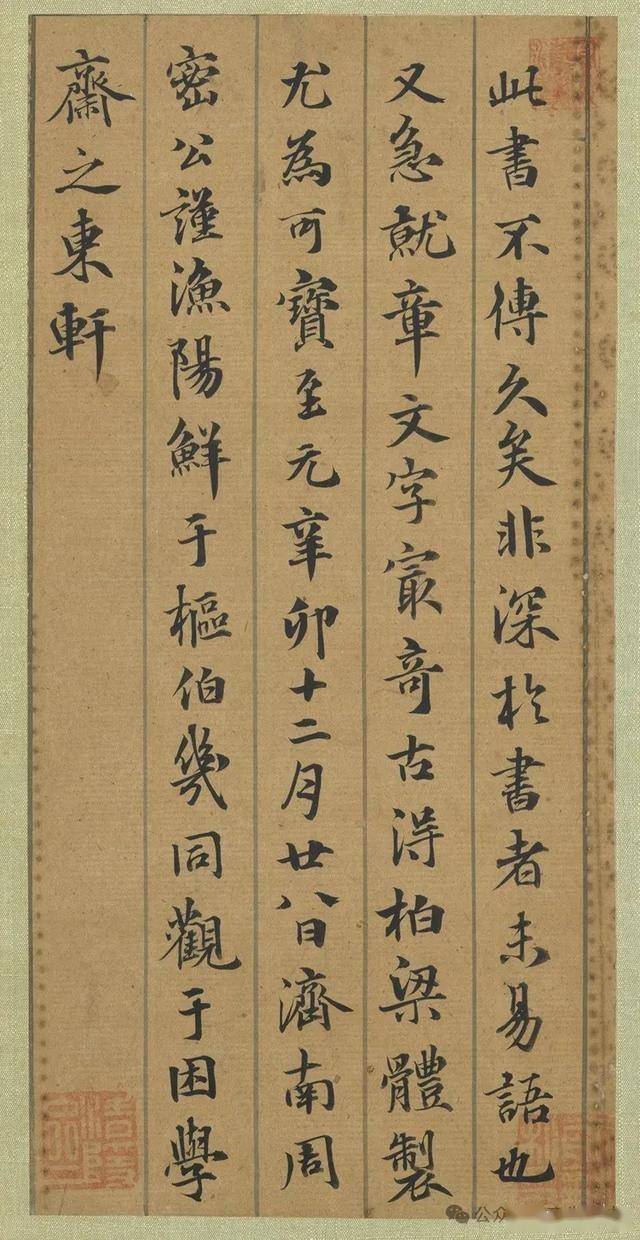 此書不傳久矣非深於書者未易語也
又急就章文字㝡奇古得柏梁體製
尤為可寶至元辛卯十二月廿八日濟南周
密公謹漁陽鮮于樞伯幾同觀于困學
齋之東軒
公众